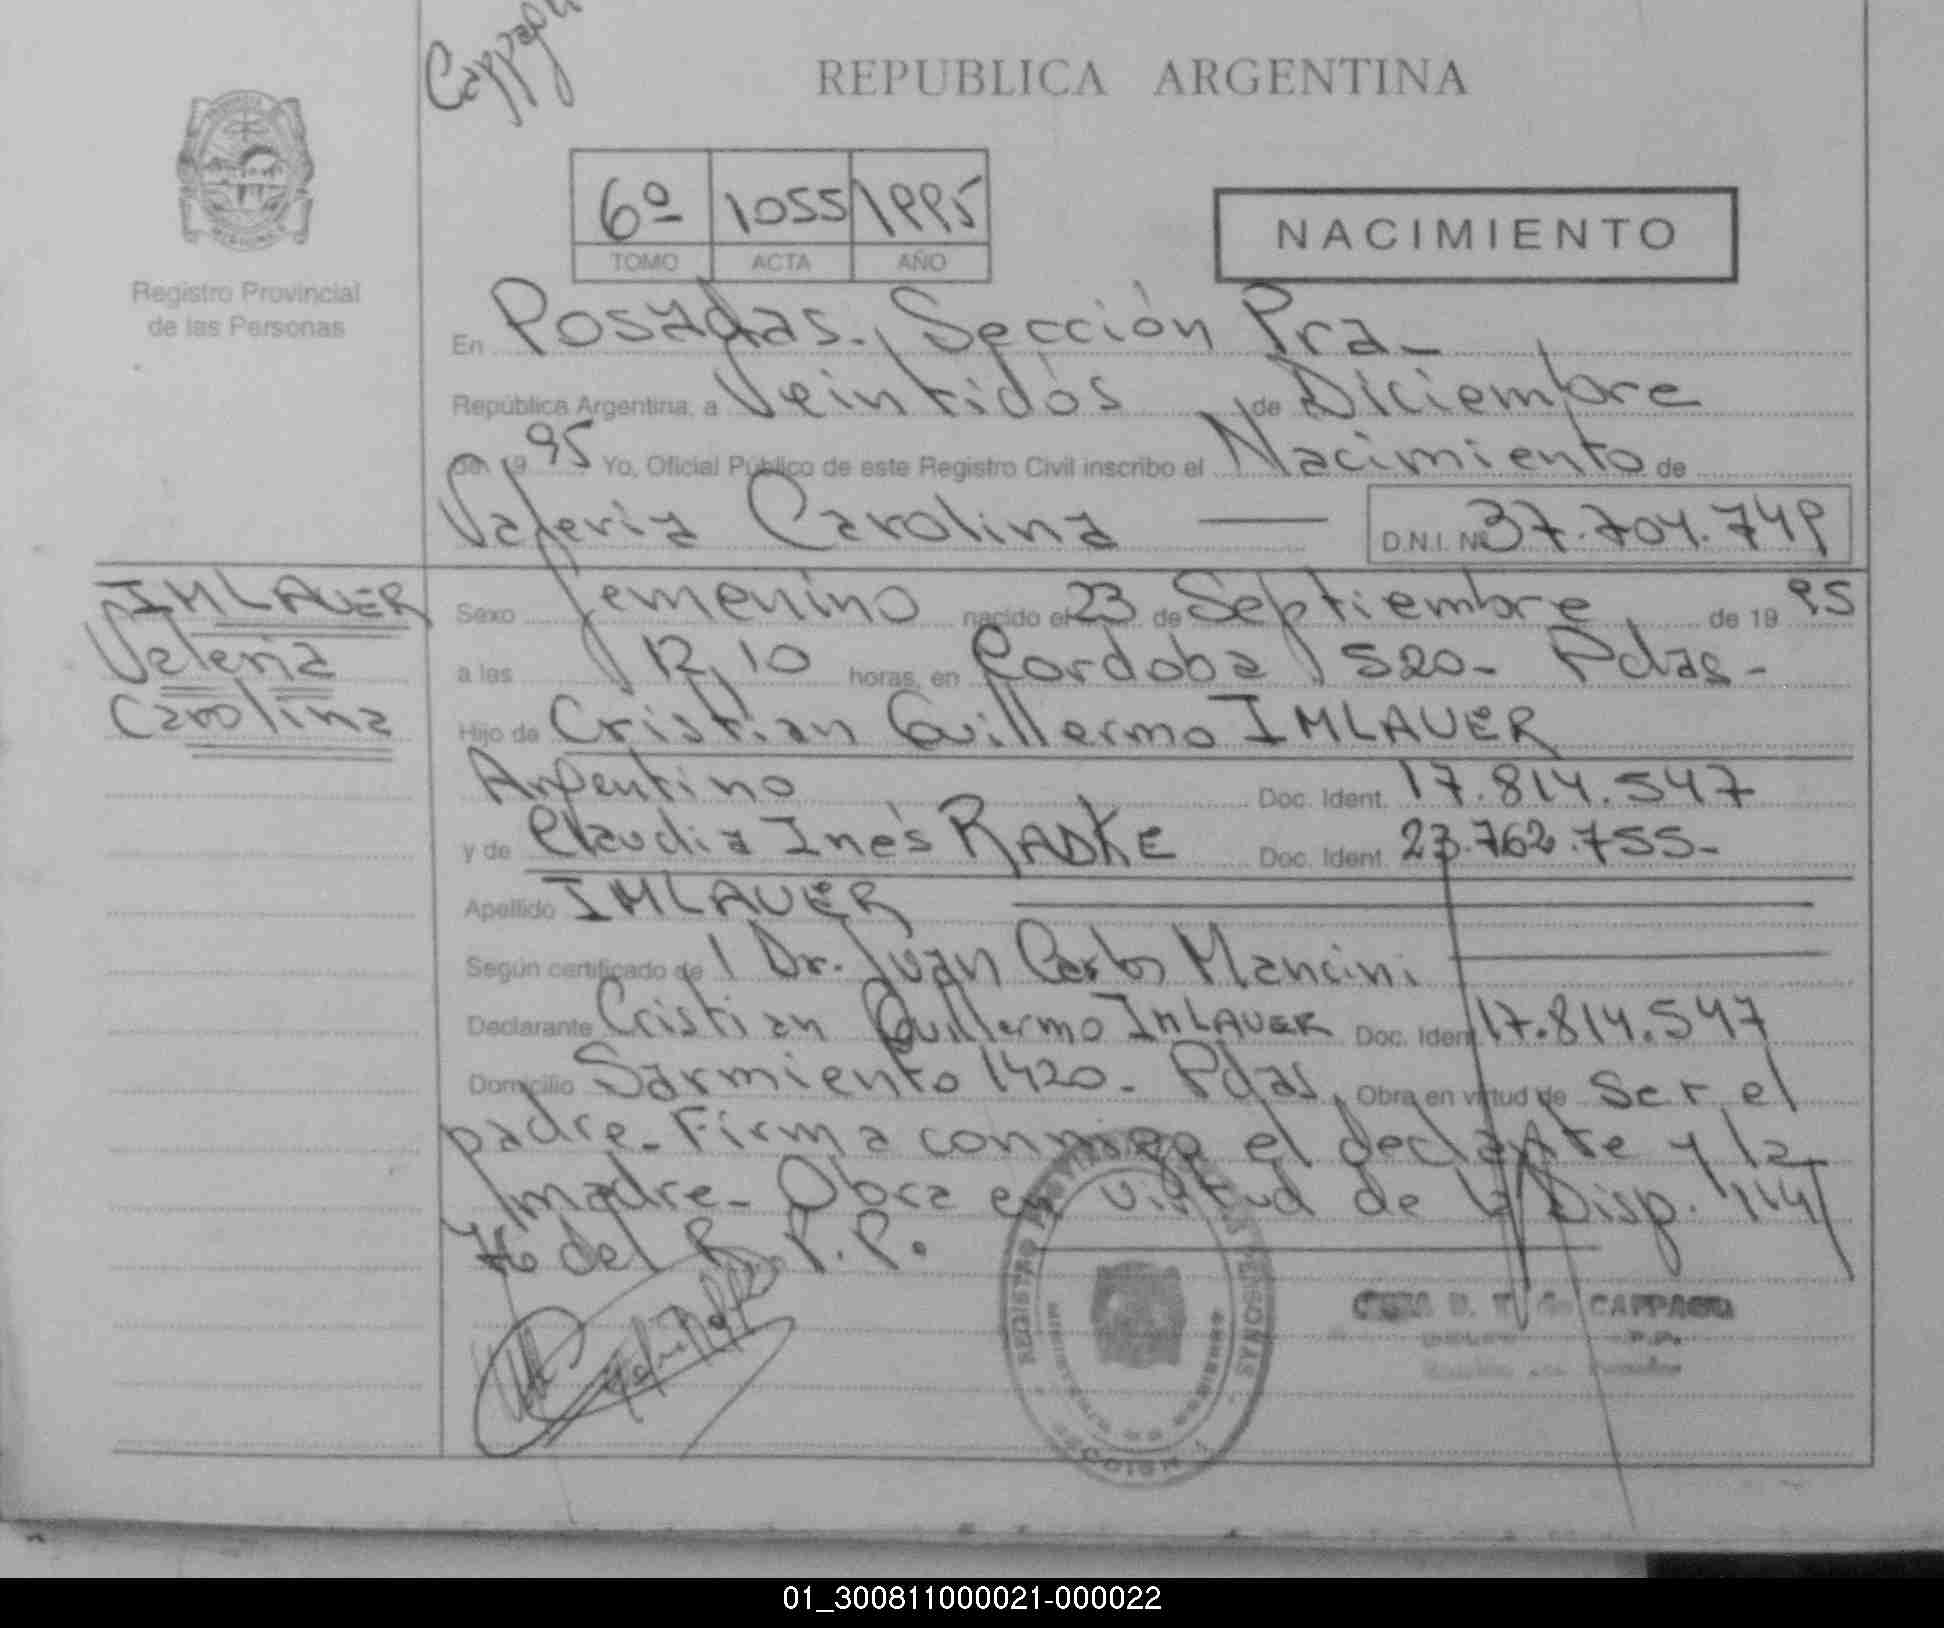 Cappagu
REPUBLICA ARGENTINA
6º 1055 1995
TOMO ACTA AÑO
NACIMIENTO
Registro Provincial
de las Personas
En Posadas. Sección Pra_
República Argentina, a Veintidós de Diciembre
de 19 95 Yo, Oficial Público de este Registro Civil inscribo el Nacimiento de
Valeria Carolina D.N.I. Nº 37.704.749
IMLAUER
Valeria
Carolina
Sexo femenino nacido el 23 de Septiembre de 19 95
a las 12,10 horas, en Cordoba 520- Pdas-
Hijo de Cristian Guillermo IMLAUER
Argentino Doc. Ident. 17.814.547
y de Claudia Inés RADKE Doc. Ident. 23.762.755-
Apellido IMLAUER
Según certificado de l Dr. Juan Carlos Mancini
Declarante Cristian Guillermo IMLAUER Doc. Ident. 17.814.547
Domicilio Sarmiento 1420- Pdas Obra en virtud de Ser el
padre- Firma conmigo el declante y la
madre- Obra en virtud de la Disp. 114/
76 del R.P.P.
REGISTRO PERSONAS
MISIONES
SECCION 1
CAPPAGU
01_300811000021-000022